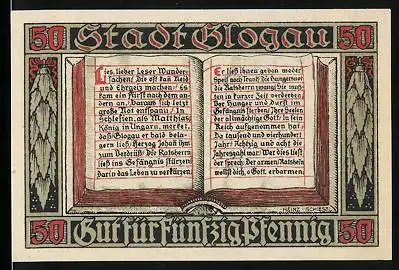 50 Stadt Glogau 50
Lies, lieber Leser Wunder-
sachen, Die oft han Neid
und Ehrgeiz machen, Es
kam ein Fürst nach dem an-
dern an, Daraus sich letzt
große Not entspann, In
Schlesien, als Matthias,
König in Ungarn, merket,
daß Glogau er bald beläg-
gern ließ, Herzog Johañ ihm
zum Verdrüß, Die Ratsherrn
ließ ins Gefängnis stürzen
darin das Leben zu verkürzen.
Er ließ ihnen geben weder
Speis noch Trank, die Hungersnot
die Ratsherrn zwang, Die muß-
ten in kurzer Zeit verderben,
Vor Hunger und Durst im
Gefängnis sterben, Ihre Seelen
der allmächtige Gott, In sein
Reich aufgenommen hat.
Da tausend und vierhundert
Jahr, Achtzig und acht die
Jahreszahl war, Wer dies liest
der sprech: Der armen Ratsherrn
wollst dich, o Gott, erbarmen.
HEINZ SCHIESTL
50 Gut für Fünfzig Pfennig 50